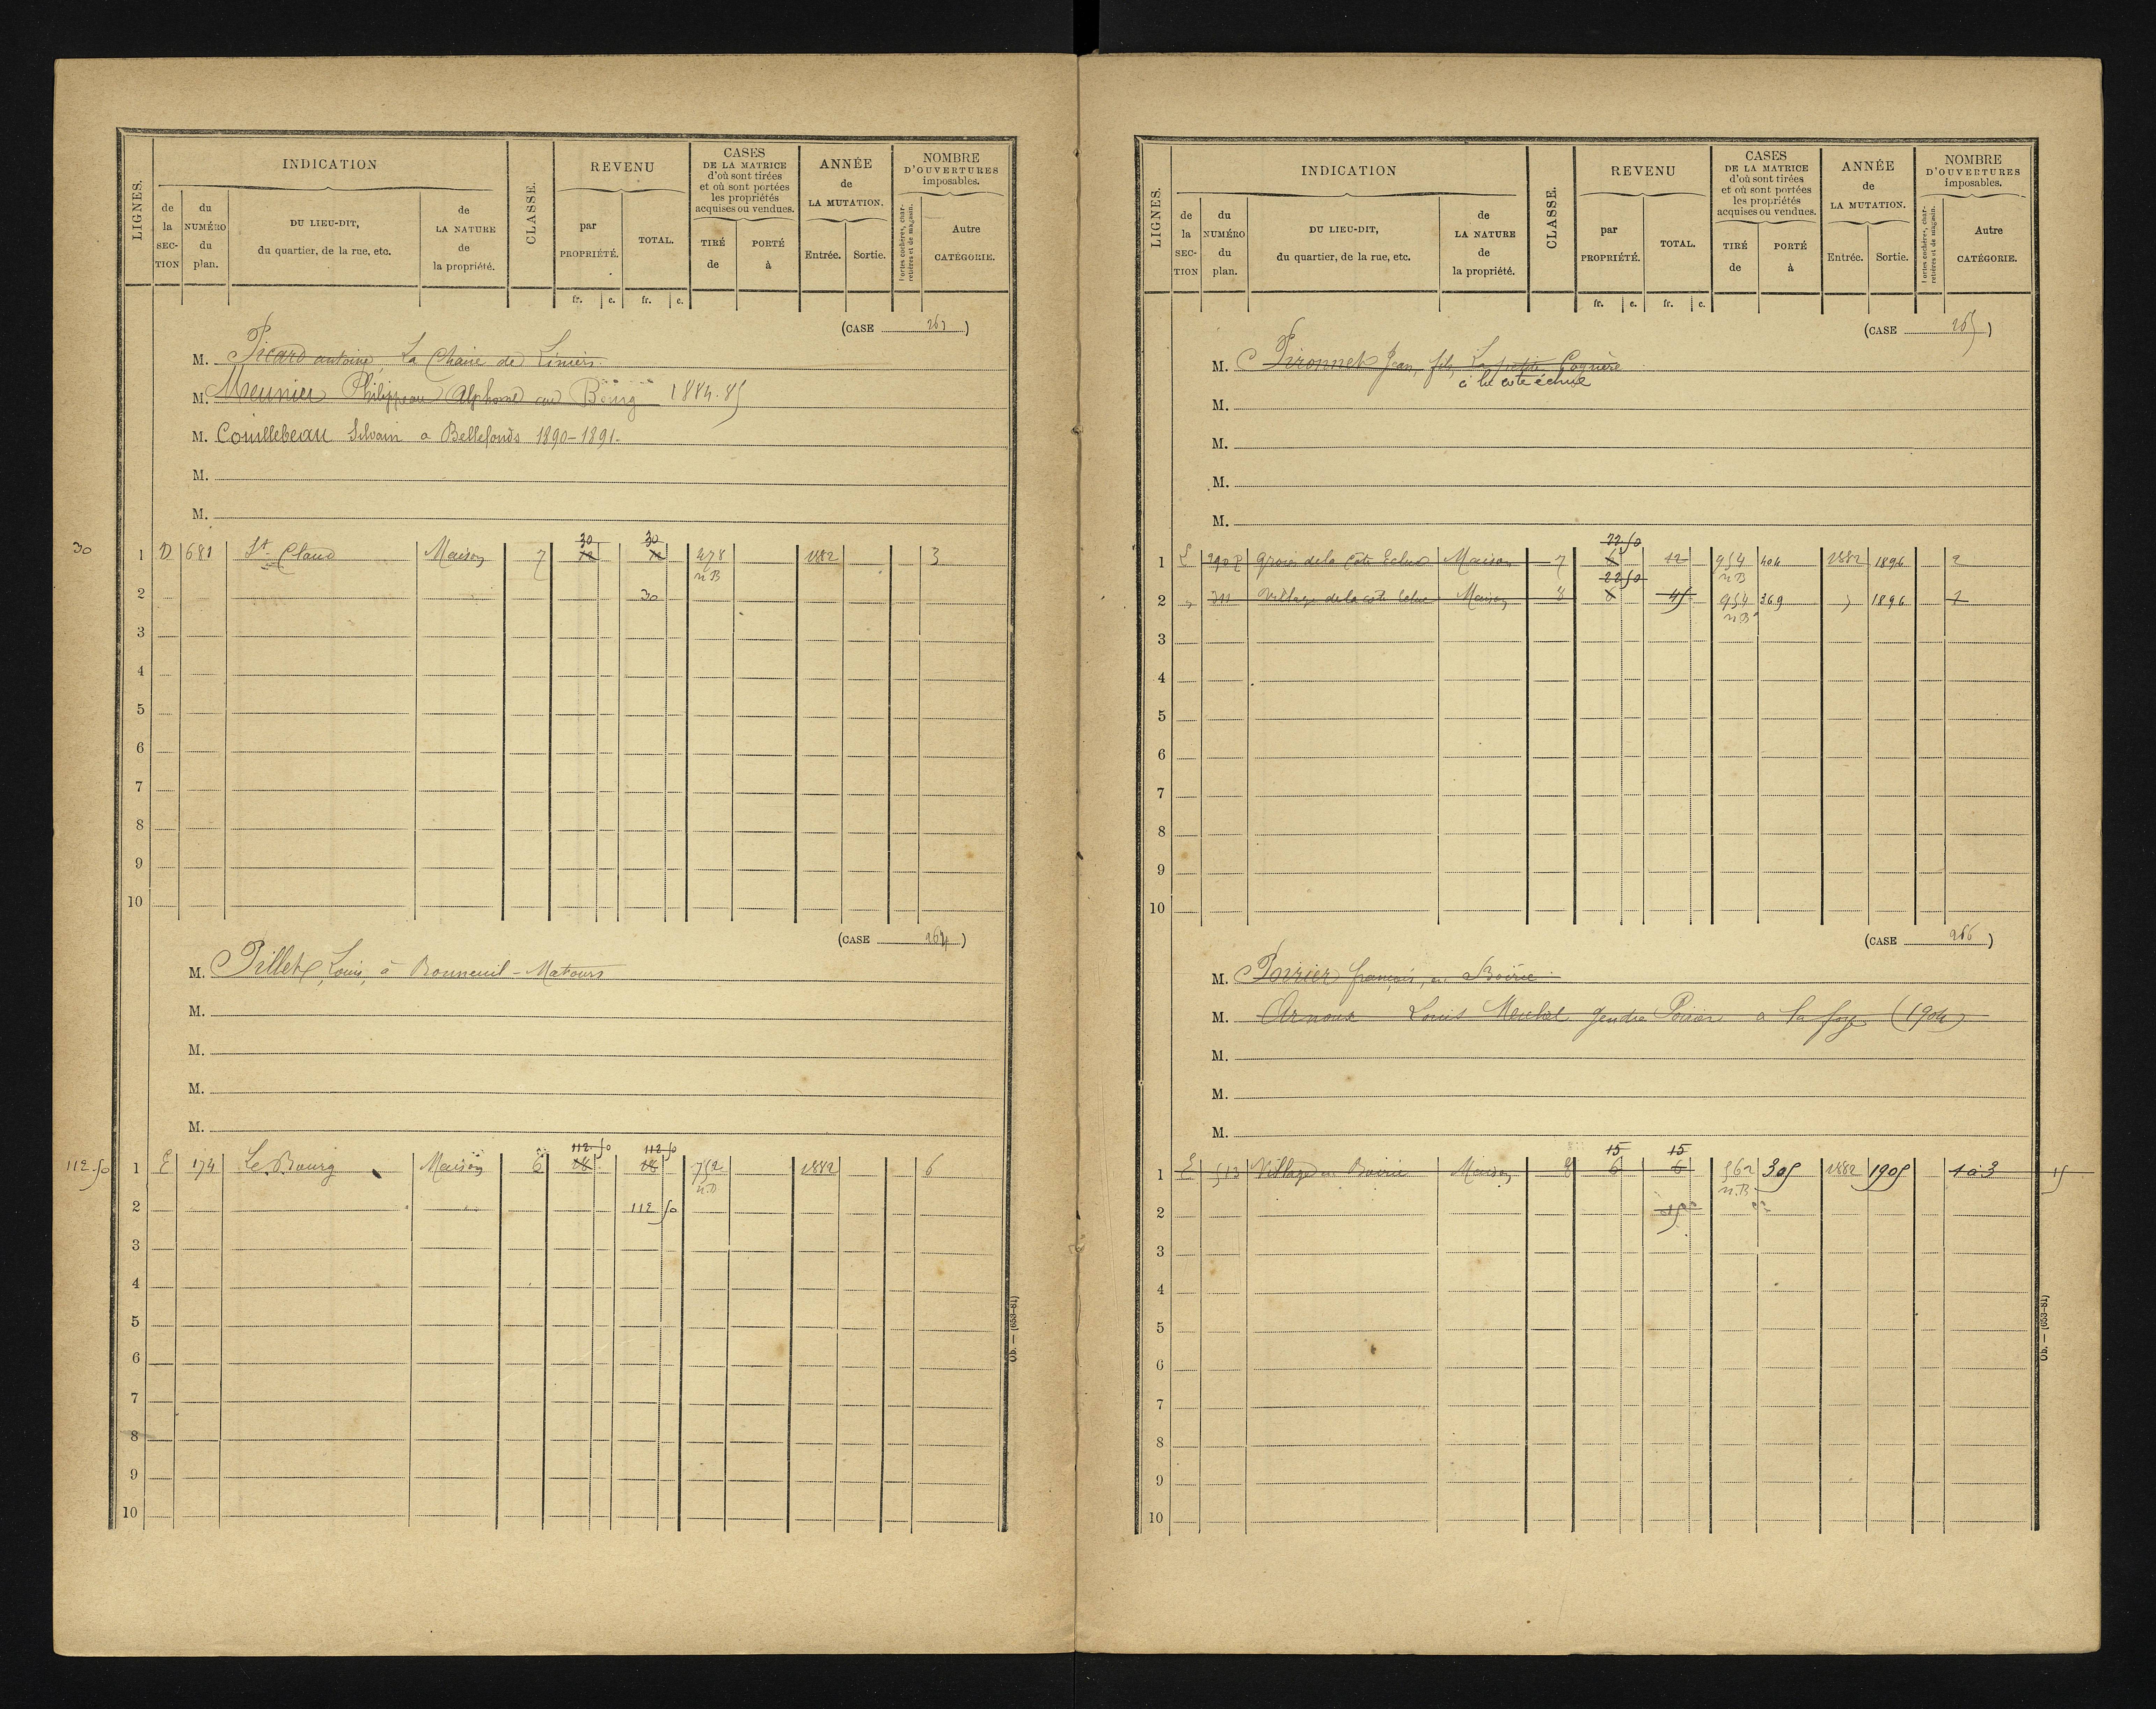 LIGNES.
INDICATION
de la SECTION
du NUMÉRO du plan.
DU LIEU-DIT, du quartier, de la rue, etc.
de LA NATURE de la propriété.
CLASSE.
REVENU
par PROPRIÉTÉ.
TOTAL.
fr. c. fr. c.
CASES DE LA MATRICE d'où sont tirées et où sont portées les propriétés acquises ou vendues.
TIRÉ de
PORTÉ à
ANNÉE de LA MUTATION.
Entrée. Sortie.
NOMBRE D'OUVERTURES imposables.
Portes cochères, charretières et de magasin.
Autre CATÉGORIE.
(CASE 263)
M. Picard antoine, La Chaise de Liniers
M. Meunier Philippeau Alphonse au Bourg 1884.85
M. Couillebeau Silvain a Bellefonds 1890-1891.
M.
M.
30 30
30 1 D 681 St Claud Maison 7 12 12 478 1882 3
n B
2 30
3
4
5
6
7
8
9
10
(CASE 264)
M. Pillet, Louis, à Bonneuil-Matours
M.
M.
M.
M.
112 50 112 50
112.50 1 E 174 Le Bourg Maison 6 18 18 752 1882 6
n.B
2 112 50
3
4
5
6
7
8
9
10
Ob. — (653-81)
LIGNES.
INDICATION
de la SECTION
du NUMÉRO du plan.
DU LIEU-DIT, du quartier, de la rue, etc.
de LA NATURE de la propriété.
CLASSE.
REVENU
par PROPRIÉTÉ.
TOTAL.
fr. c. fr. c.
CASES DE LA MATRICE d'où sont tirées et où sont portées les propriétés acquises ou vendues.
TIRÉ de
PORTÉ à
ANNÉE de LA MUTATION.
Entrée. Sortie.
NOMBRE D'OUVERTURES imposables.
Portes cochères, charretières et de magasin.
Autre CATÉGORIE.
(CASE 265)
M. Pironnet Jean, fils, La petite
à la cote écluse
M.
M.
M.
M.
22 50
1 E 290 P de la Cote Ecluse Maison 7 6 12 954 404 1882 1896 2
22 50 n B
2 " 311 Village de la cote Ecluse Maison 8 6 45 954 369 " 1896 2
n B
3
4
5
6
7
8
9
10
(CASE 266)
M. Poirier françois, en Boirie
M. Arnoux Louis gendre Poirier a la foye (1904)
M.
M.
M.
15 15
1 E 513 Village en Boirie Maison 8 6 6 562 305 1882 1905 1 à 3 15
n.B
2 15
3
4
5
6
7
8
9
10
Ob. — (653-81)